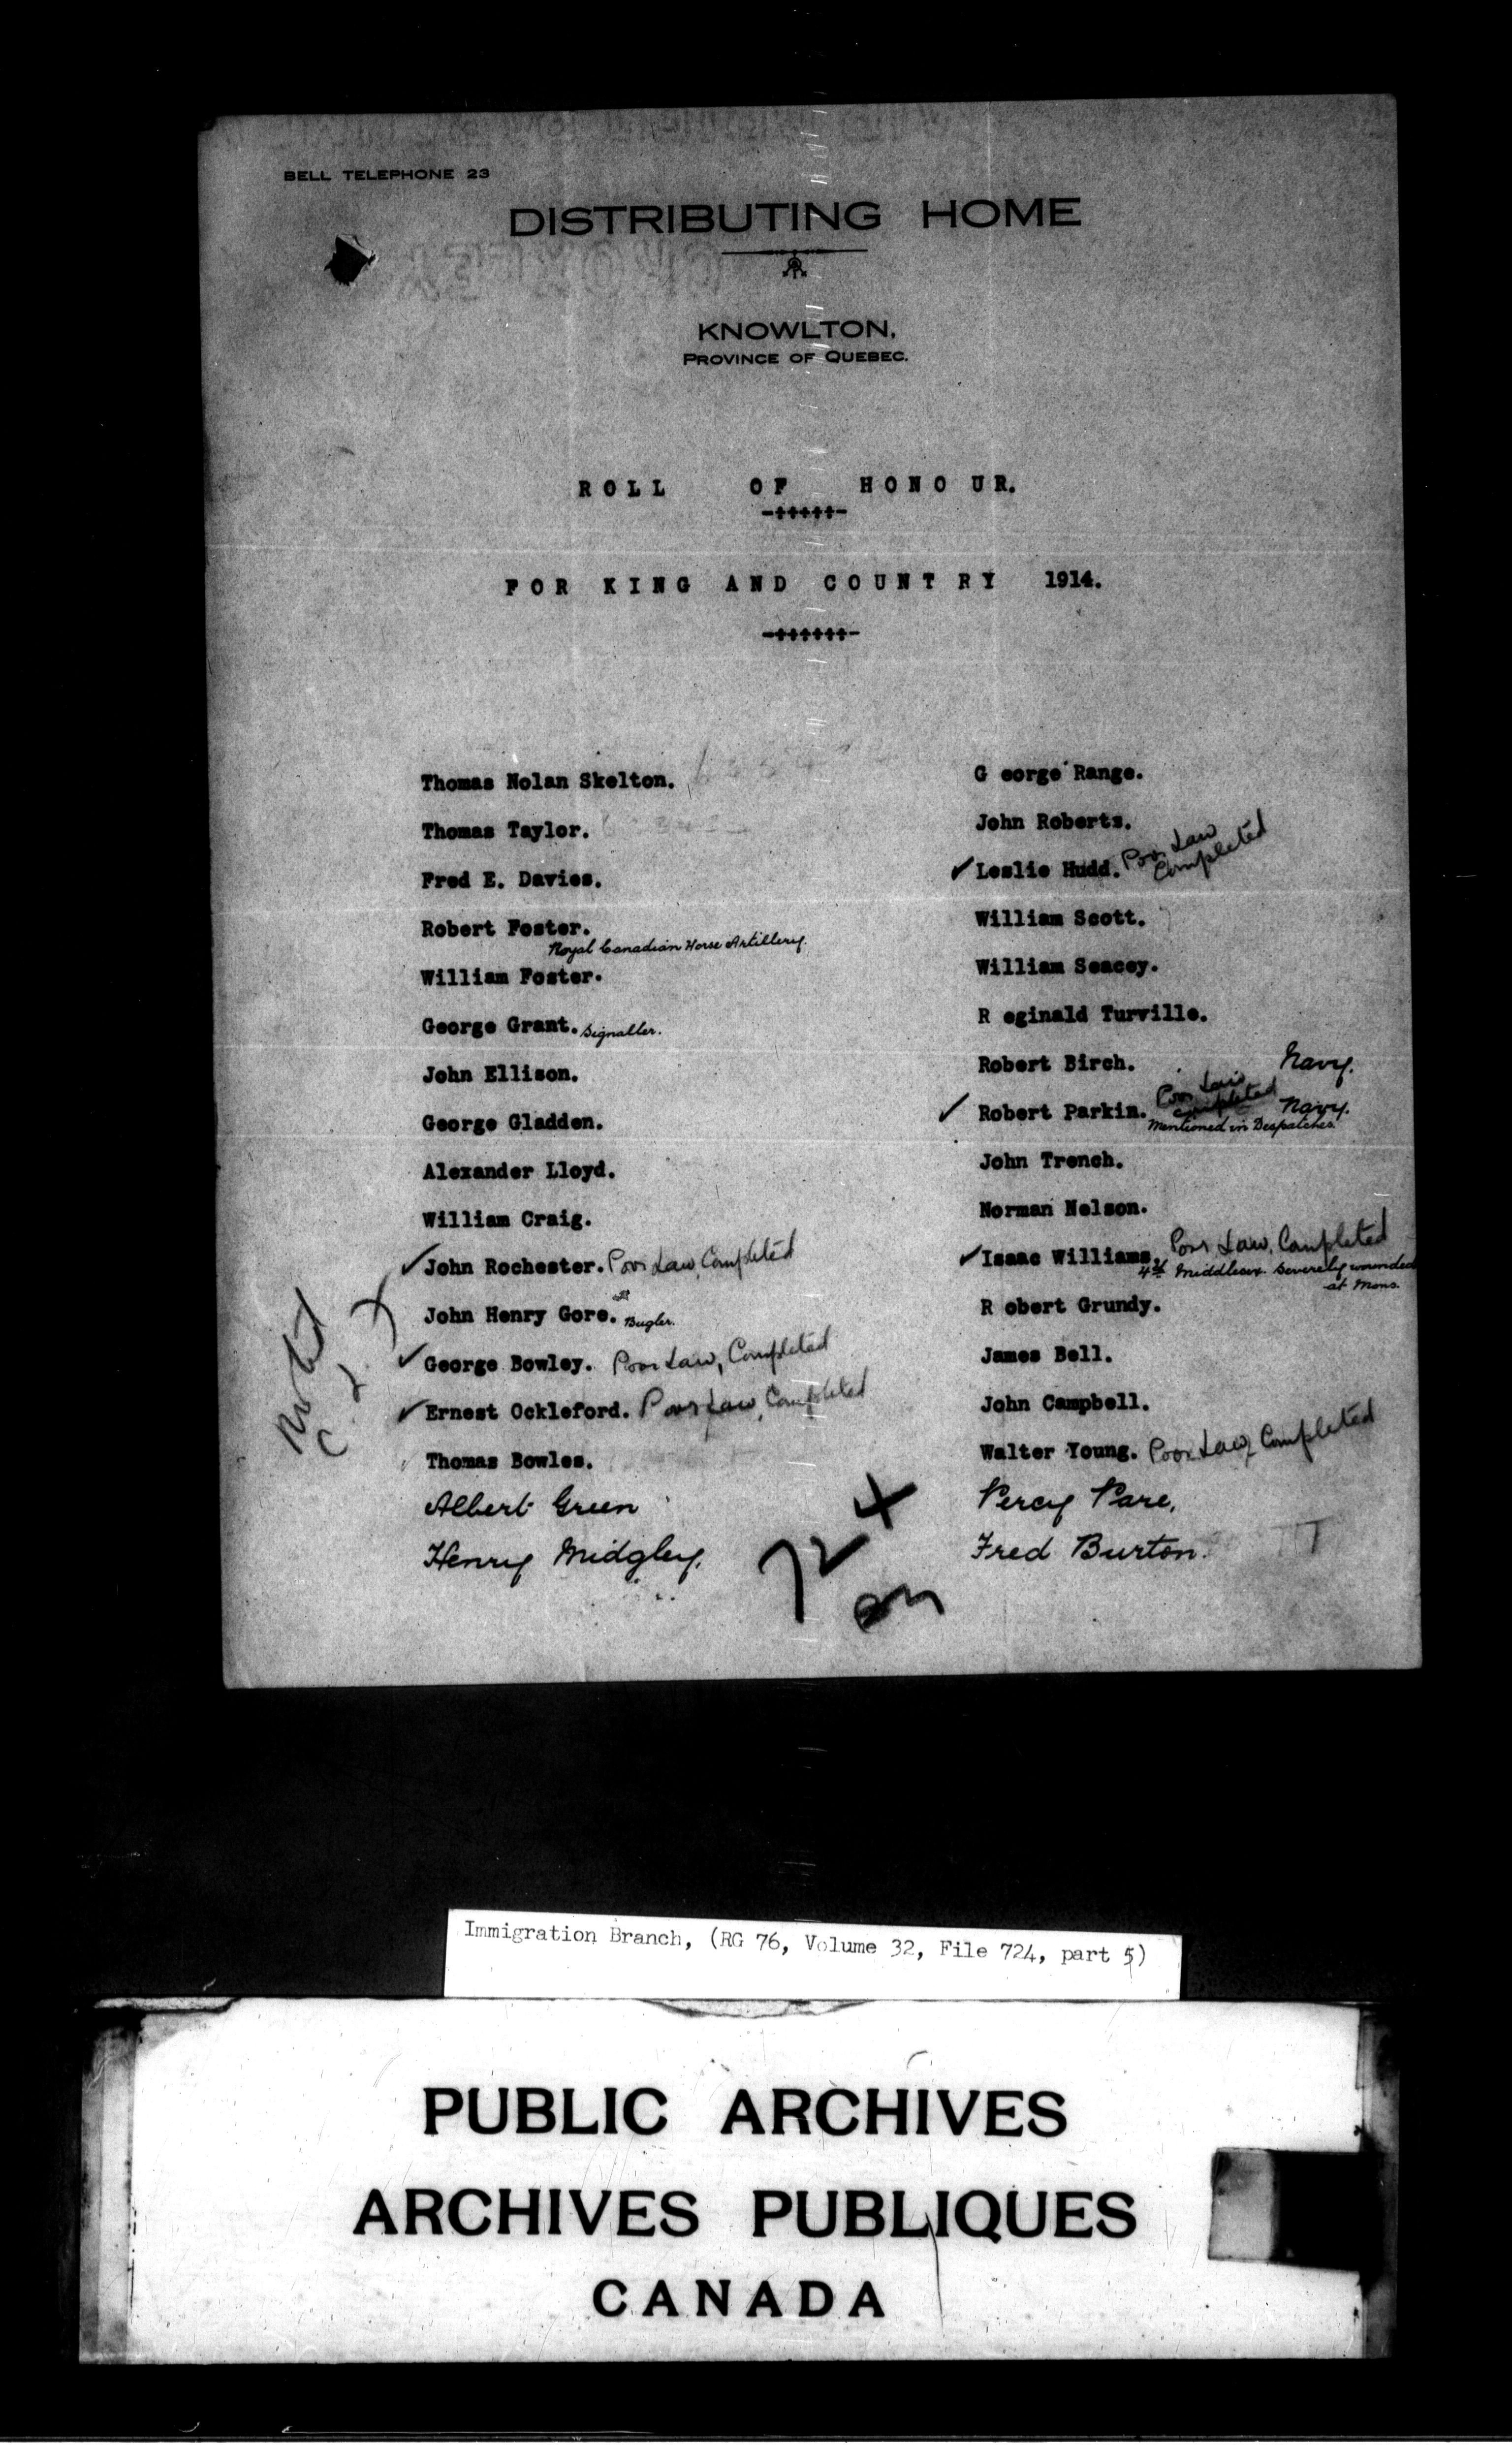 BELL TELEPHONE 23
DISTRIBUTING HOME
KNOWLTON,
PROVINCE OF QUEBEC.
ROLL OF HONOUR.
-+++++-
FOR KING AND COUNTRY 1914.
-++++++-
Thomas Nolan Skelton.
Thomas Taylor.
Fred E. Davies.
Robert Foster.
Royal Canadian Horse Artillery.
William Foster.
George Grant. Signaller.
John Ellison.
George Gladden.
Alexander Lloyd.
William Craig.
✓ John Rochester. Poor Law, Completed
John Henry Gore. Bugler.
✓ George Bowley. Poor Law, Completed
✓ Ernest Ockleford. Poor Law, Completed
Thomas Bowles.
Albert Green
Henry Midgley.
Noted
G eorge Range.
John Roberts.
✓ Leslie Hudd. Poor Law
Completed
William Scott.
William Seacey.
R eginald Turville.
Robert Birch. Navy.
✓ Robert Parkin. Poor Law
Completed Navy.
Mentioned in Despatches.
John Trench.
Norman Nelson.
✓ Isaac Williams. Poor Law, Completed
4th Middlesex. Severely wounded
at Mons.
R obert Grundy.
James Bell.
John Campbell.
Walter Young. Poor Law, Completed
Percy Pare,
Fred Burton.
Immigration Branch, (RG 76, Volume 32, File 724, part 5)
PUBLIC ARCHIVES
ARCHIVES PUBLIQUES
CANADA